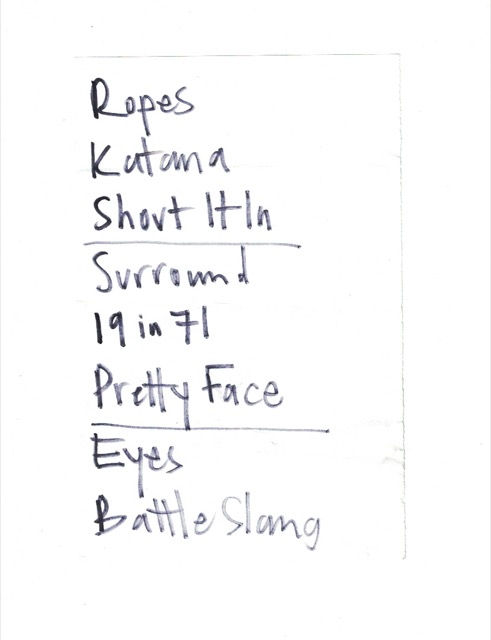 Ropes
Katana
Shout It In
Surround
19 in 71
Pretty Face
Eyes
Battle Slang